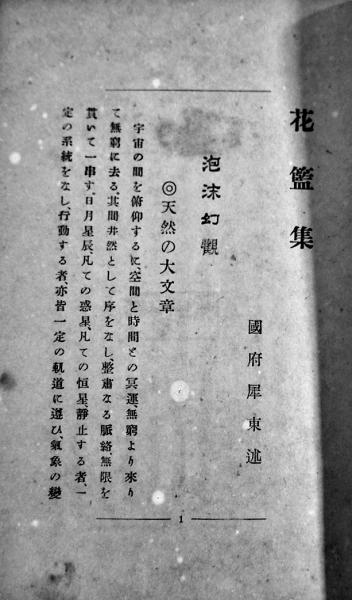 花籃集
國府犀東述
泡沫幻觀
◎天然の大文章
宇宙の間を俯仰するに、空間と時間との冥運、無窮より來り
て無窮に去る、其間井然として序をなし、整肅なる脈絡、無限を
貫いて一串す、日月星辰、凡ての惑星、凡ての恒星、靜止する者、一
定の系統をなし、行動する者、亦皆一定の軌道に遵ひ、氣象の變
1